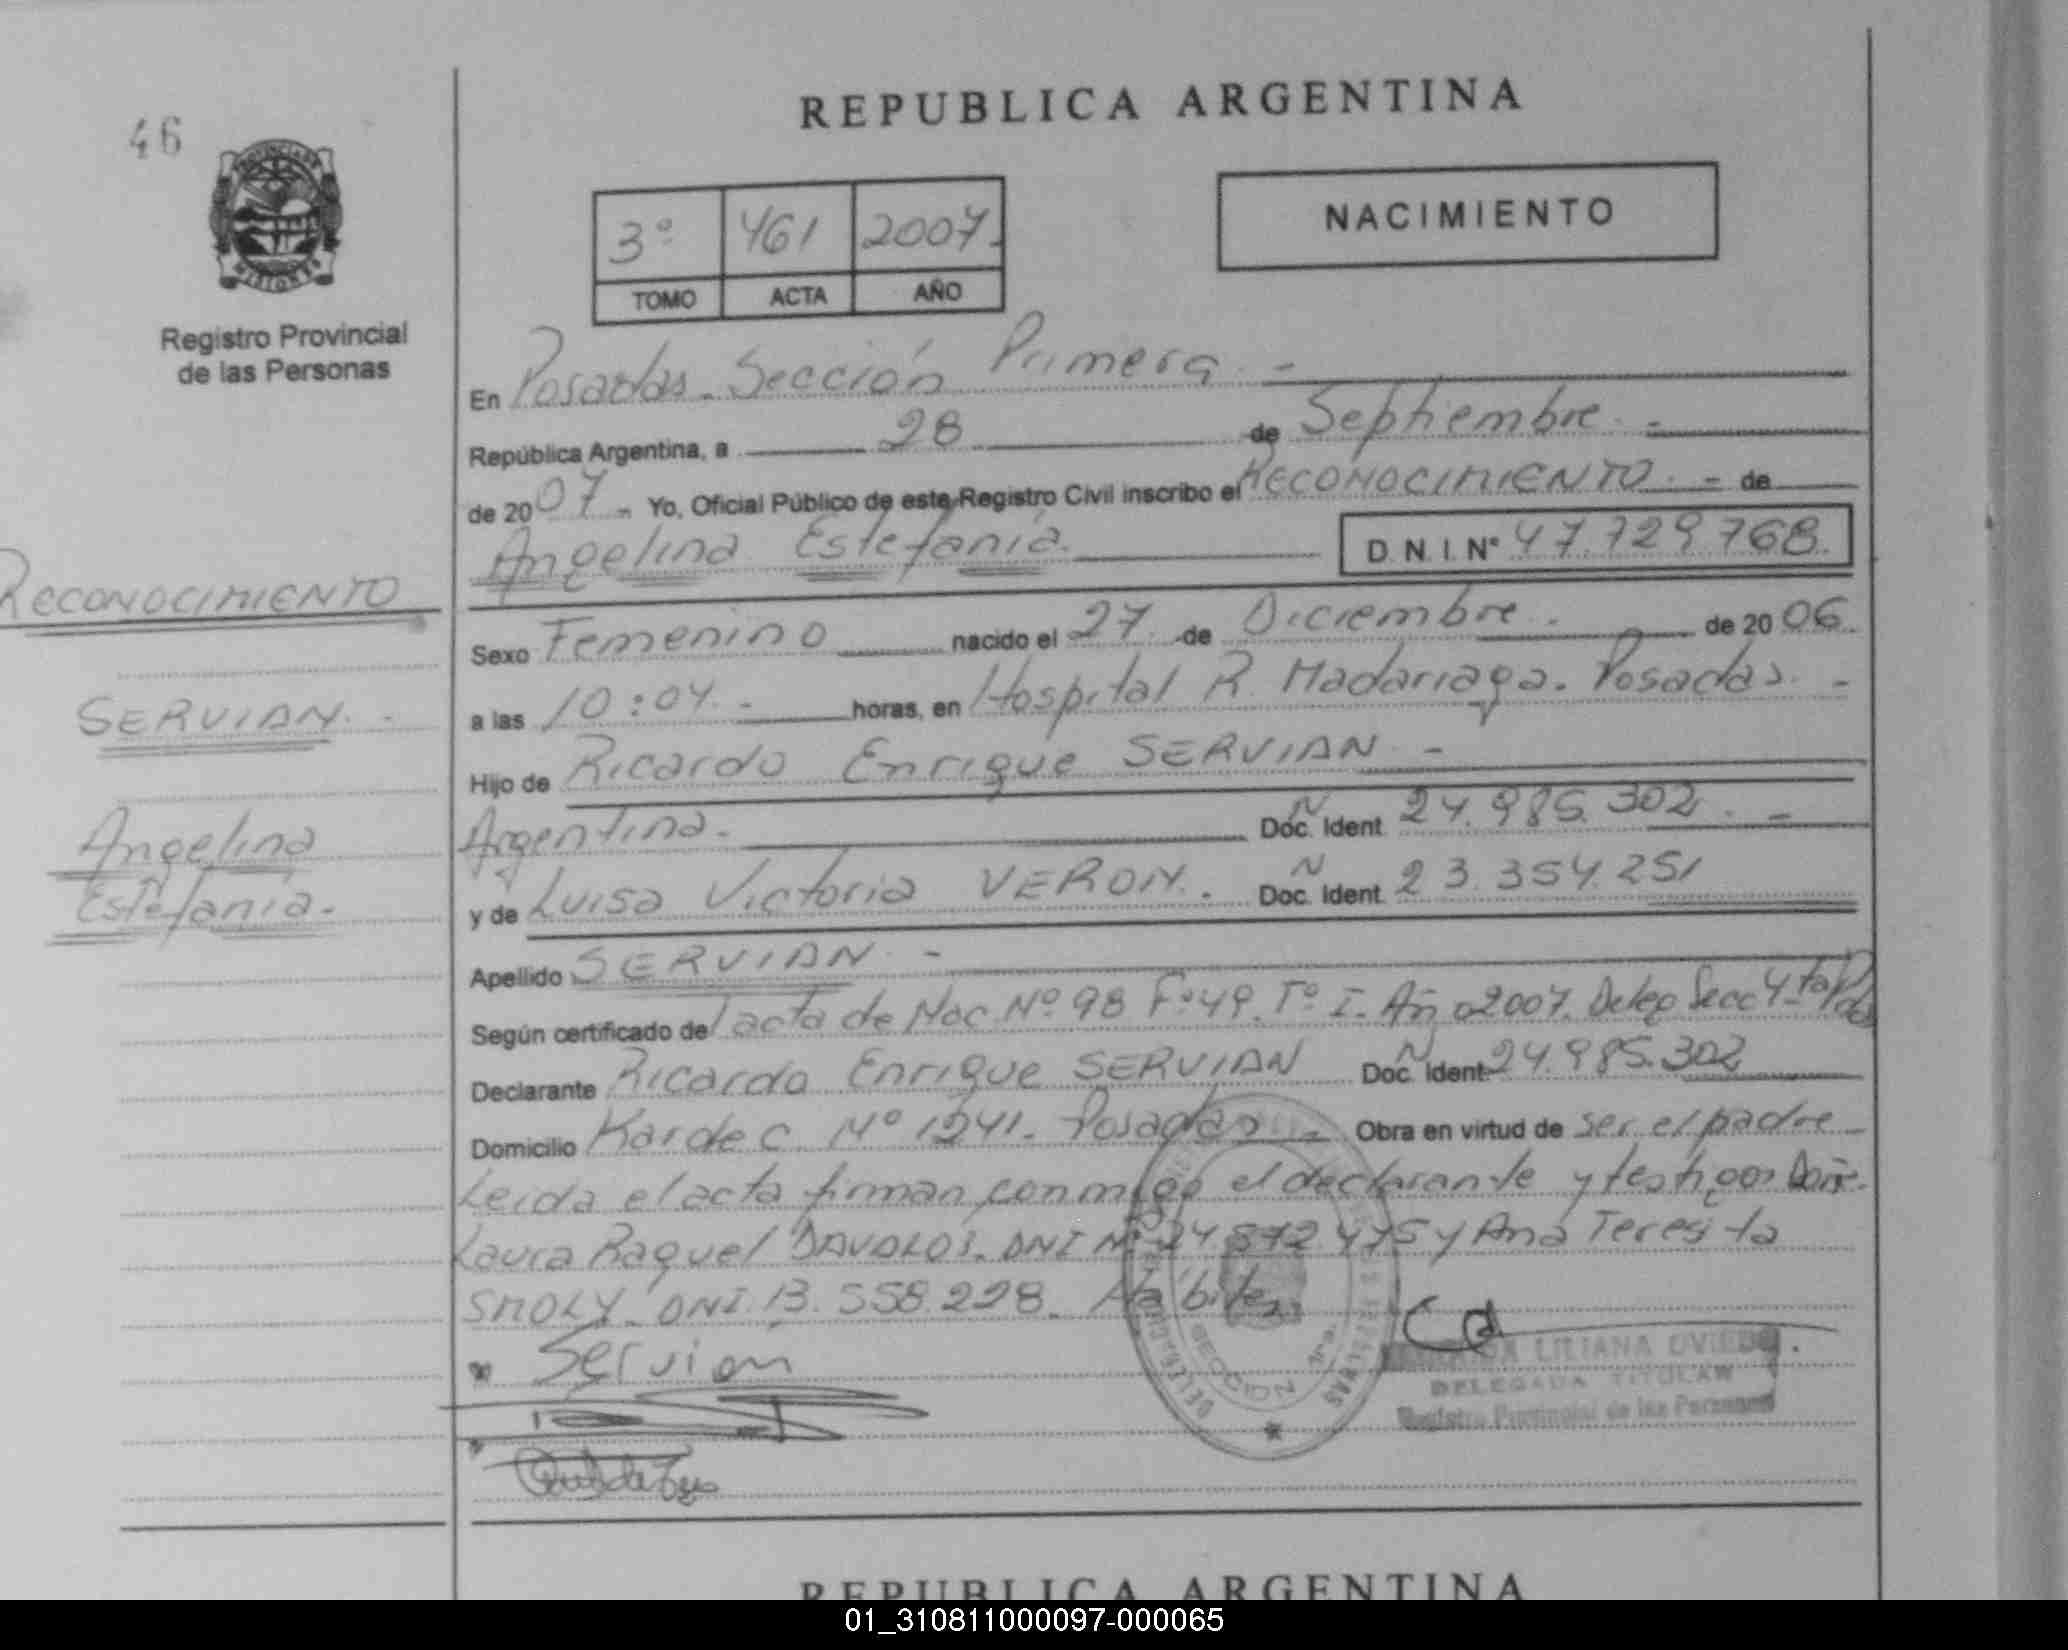 REPUBLICA ARGENTINA
46
PROVINCIA DE
MISIONES
Registro Provincial
de las Personas
NACIMIENTO
3º 461 2007.
TOMO ACTA AÑO
En Posadas. Sección Primera. -
República Argentina, a 28 de Septiembre. -
de 2007. Yo, Oficial Público de este Registro Civil inscribo el RECONOCIMIENTO. - de
Angelina Estefanía. D.N.I. Nº 47.729.768.
RECONOCIMIENTO
SERVIAN. -
Angelina
Estefanía.
Sexo Femenino nacido el 27 de Diciembre. de 2006.
a las 10:04. - horas, en Hospital R. Madariaga. Posadas. -
Hijo de Ricardo Enrique SERVIAN -
Argentina. Doc. Ident. 24.985.302. -
y de Luisa Victoria VERON. Doc. Ident. 23.354.251
Apellido SERVIAN. -
Según certificado de acta de Nac. Nº 98 Fº 49. Tº I. Año 2007. Deleg Secc 4ta Pdas
Declarante Ricardo Enrique SERVIAN Doc. Ident. 24.985.302
Domicilio Kardec Nº 1241. Posadas - Obra en virtud de ser el padre
Leida el acta firman conmigo el declarante y testigos
Laura Raquel DAVALOS. DNI Nº 24.572.475 y Ana Teresita
SMOLY. DNI. 13.558.228.
Servian
SECCION 1ra.
LILIANA OVIEDO
DELEGADA TITULAR
Registro Provincial de las Personas
REPUBLICA ARGENTINA
01_310811000097-000065